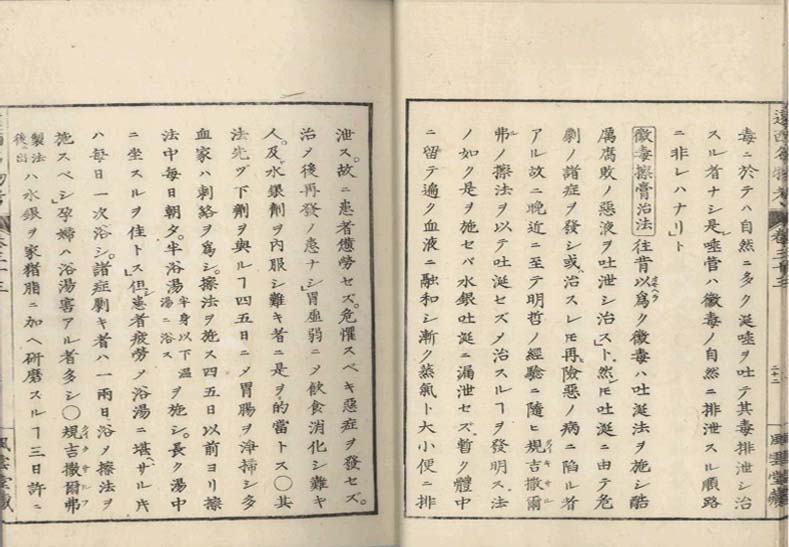 毒ニ於テハ自然ニ多ク涎唾ヲ吐テ其毒排泄シ治
スル者ナシ是唾管ハ黴毒ノ自然ニ排泄スル順路
ニ非レハナリト
黴毒擦膏治法 往昔以爲ク黴毒ハ吐涎法ヲ施シ酷
厲腐敗ノ惡液ヲ吐泄シ治スト然レ𪜈吐涎ニ由テ危
劇ノ諸症ヲ發シ或ハ治スレ𪜈再險惡ノ病ニ陷ル者
アル故ニ晩近ニ至テ明哲ノ經驗ニ隨ヒ規吉撒爾
弗ノ擦法ヲ以テ吐涎セズ〆治スルヿヲ發明ス法
ノ如ク是ヲ施セバ水銀吐涎ニ漏泄セズ暫ク體中
ニ留テ遍ク血液ニ融和シ漸ク蒸氣ト大小便ニ排
卷三十三
二十二
風雲堂藏
泄ス。故ニ患者憊勞セズ。危懼スベキ惡症ヲ發セズ。
治ヲ後再發ノ患ナシ」胃虚弱ニ〆飲食消化シ難キ
人。及ヒ水銀劑ヲ内服シ難キ者ニ是ヲ的當トス○其
法先ヅ下劑ヲ與ルヿ四五日ニ〆胃腸ヲ淨掃シ多
血家ハ刺絡ヲ爲シ。擦法ヲ施ス四五日以前ヨリ擦
法中毎日朝夕。半浴湯 半身以下温湯ニ浴ス ヲ施シ。長ク湯中
ニ坐スルヲ佳トス」但シ患者疲勞〆浴湯ニ堪ザル𪜈
ハ毎日一次浴シ。諸症劇キ者ハ一兩日浴〆擦法ヲ
施スベシ」孕婦ハ浴湯害アル者多シ○規吉撒爾弗
製法後ニ出 ハ水銀ヲ家猪脂ニ加ヘ研磨スルヿ三日許ニ